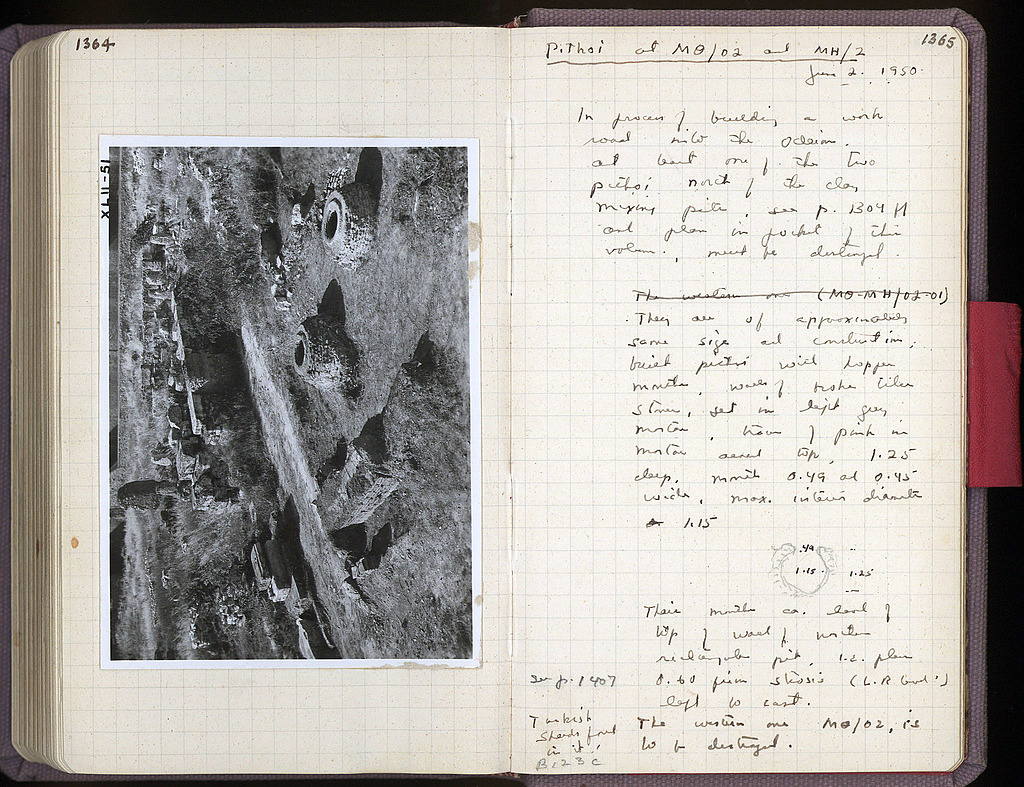 1364
XLII-51
1365
Pithoi at ΜΘ/02 and ΜΗ/2
June 2. 1950.
In process of building a work
road into the Odeion.
at least one of the two
pithoi north of the clay
mixing pits, see p. 1304 ff
and plan in pocket of this
volume, must be destroyed.
The western one (ΜΘ-ΜΗ/02-01)
They are of approximately
same size and construction,
built pithoi with
mouths, walls of broken tiles
stones, set in light grey
mortar, traces of pink in
mortar around top, 1.25
deep, mouth 0.49 and 0.45
wide, max. interior diameter
1.15
.49
1.15
1.25
Their mouths ca. level of
top of wall of northern
rectangular pit, i.e. plan
0.60 from stosis (L.R level?)
left to east.
The western one ΜΘ/02, is
to be destroyed.
see p. 1407
Turkish
sherds found
in it,
B 123 C